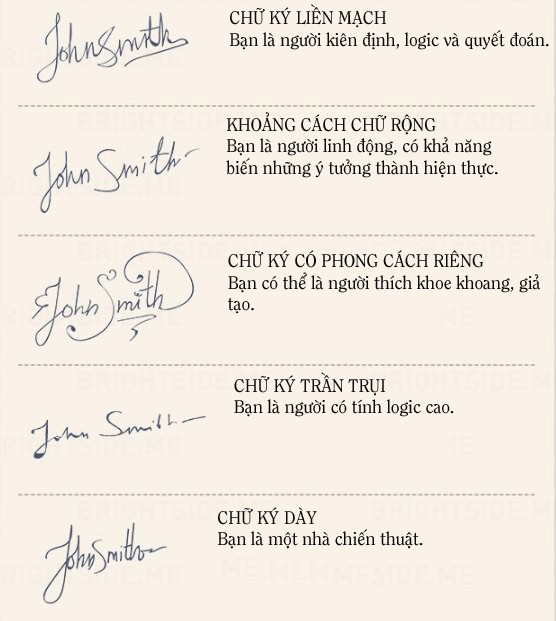 John Smith
CHỮ KÝ LIỀN MẠCH
Bạn là người kiên định, logic và quyết đoán.
BRIGHTSIDE.ME
John Smith
KHOẢNG CÁCH CHỮ RỘNG
Bạn là người linh động, có khả năng
biến những ý tưởng thành hiện thực.
BRIGHTSIDE.ME
John Smith
CHỮ KÝ CÓ PHONG CÁCH RIÊNG
Bạn có thể là người thích khoe khoang, giả
tạo.
BRIGHTSIDE.ME
John Smith
CHỮ KÝ TRẦN TRỤI
Bạn là người có tính logic cao.
BRIGHTSIDE.ME
John Smith
CHỮ KÝ DÀY
Bạn là một nhà chiến thuật.